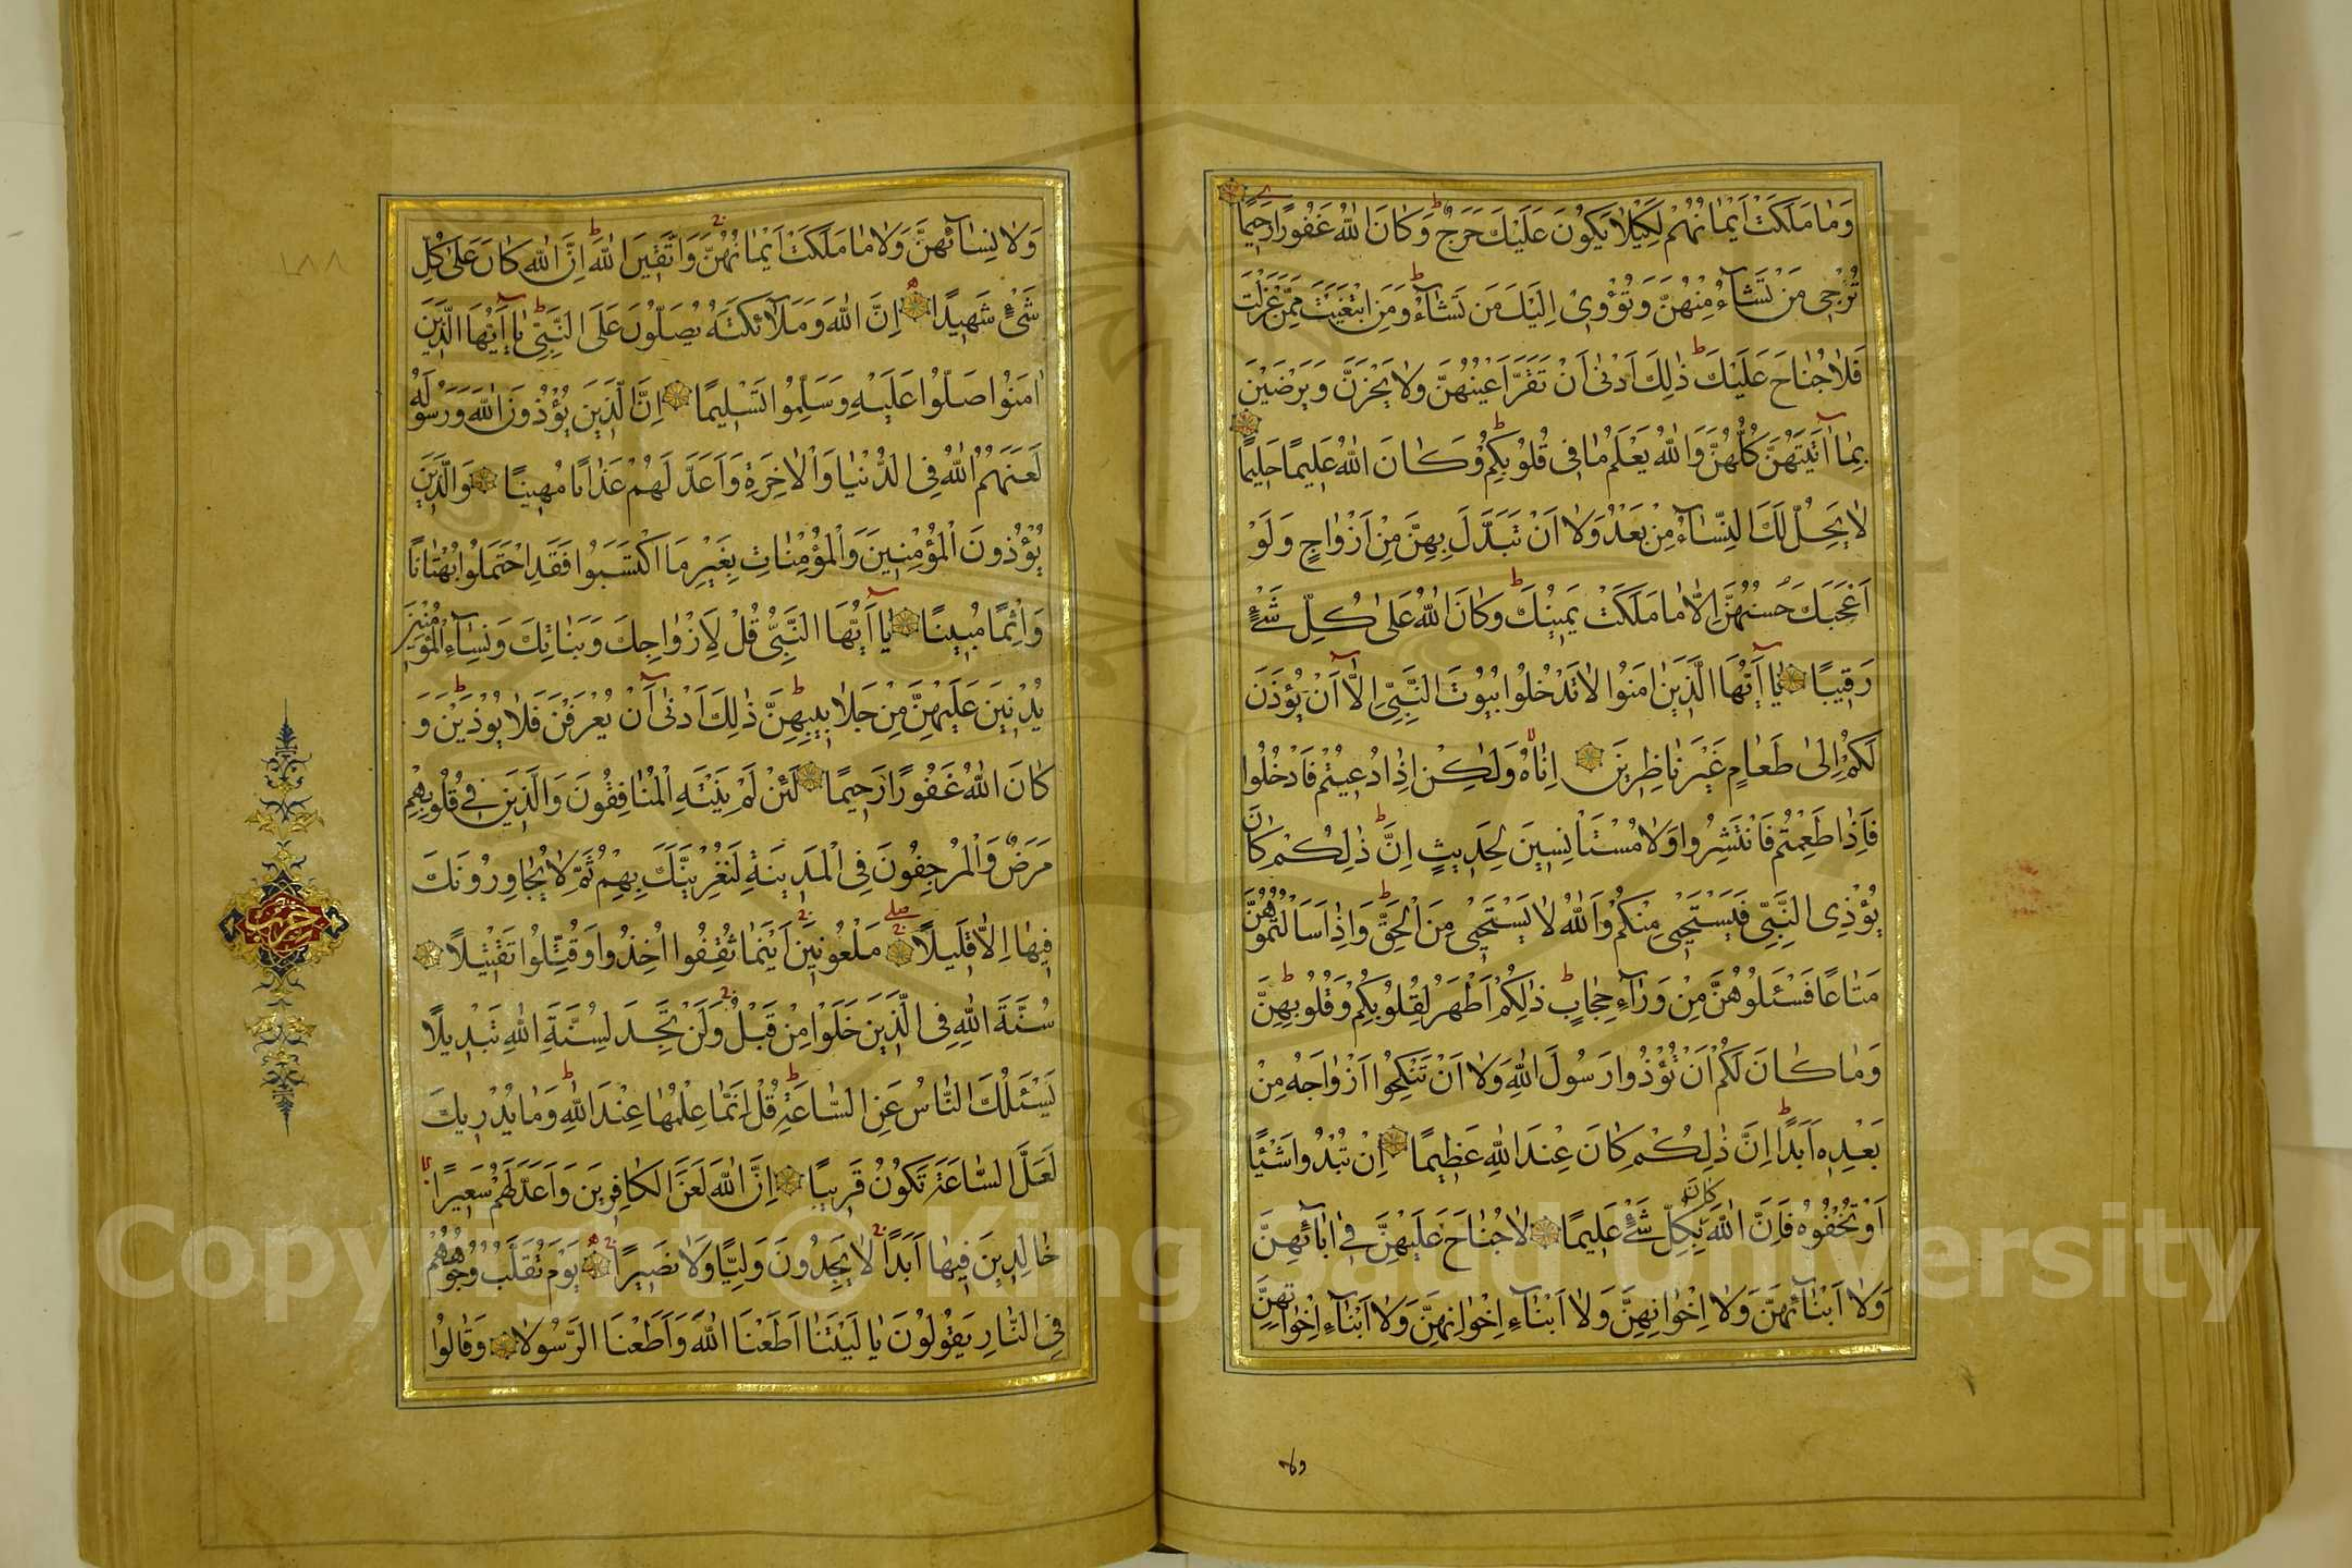 وَمَا مَلَكَتْ اَيْمَانُهُمْ لِكَيْلَا يَكُونَ عَلَيْكَ حَرَجٌ ط وَكَانَ اللّٰهُ غَفُورًا رَحِيمًا
تُرْجِى مَنْ تَشَآءُ مِنْهُنَّ وَتُؤْوِى اِلَيْكَ مَن تَشَآءُ ط وَمَنِ ابْتَغَيْتَ مِمَّنْ عَزَلْتَ
فَلَا جُنَاحَ عَلَيْكَ ط ذٰلِكَ اَدْنٰى اَنْ تَقَرَّ اَعْيُنُهُنَّ وَلَا يَحْزَنَّ وَيَرْضَيْنَ
بِمَآ اٰتَيْتَهُنَّ كُلُّهُنَّ وَاللّٰهُ يَعْلَمُ مَا فِى قُلُوبِكُمْ ط وَكَانَ اللّٰهُ عَلِيمًا حَلِيمًا
لَا يَحِلُّ لَكَ النِّسَآءُ مِنْ بَعْدُ وَلَا اَنْ تَبَدَّلَ بِهِنَّ مِنْ اَزْوَاجٍ وَلَوْ
اَعْجَبَكَ حُسْنُهُنَّ اِلَّا مَا مَلَكَتْ يَمِينُكَ ط وَكَانَ اللّٰهُ عَلٰى كُلِّ شَىْءٍ
رَقِيبًا يَآ اَيُّهَا الَّذِينَ اٰمَنُوا لَا تَدْخُلُوا بُيُوتَ النَّبِىِّ اِلَّآ اَنْ يُؤْذَنَ
لَكُمْ اِلٰى طَعَامٍ غَيْرَ نَاظِرِينَ اِنَاهُ وَلٰكِنْ اِذَا دُعِيتُمْ فَادْخُلُوا
فَاِذَا طَعِمْتُمْ فَانْتَشِرُوا وَلَا مُسْتَاْنِسِينَ لِحَدِيثٍ ط اِنَّ ذٰلِكُمْ كَانَ
يُؤْذِى النَّبِىَّ فَيَسْتَحْيِى مِنْكُمْ وَاللّٰهُ لَا يَسْتَحْيِى مِنَ الْحَقِّ ط وَاِذَا سَاَلْتُمُوهُنَّ
مَتَاعًا فَسْـَٔلُوهُنَّ مِنْ وَرَآءِ حِجَابٍ ط ذٰلِكُمْ اَطْهَرُ لِقُلُوبِكُمْ وَقُلُوبِهِنَّ ط
وَمَا كَانَ لَكُمْ اَنْ تُؤْذُوا رَسُولَ اللّٰهِ وَلَا اَنْ تَنْكِحُوا اَزْوَاجَهُ مِنْ
بَعْدِهِ اَبَدًا ط اِنَّ ذٰلِكُمْ كَانَ عِنْدَ اللّٰهِ عَظِيمًا اِنْ تُبْدُوا شَيْئًا
اَوْ تُخْفُوهُ فَاِنَّ اللّٰهَ كَانَ بِكُلِّ شَىْءٍ عَلِيمًا لَا جُنَاحَ عَلَيْهِنَّ فِى اٰبَآئِهِنَّ
وَلَا اَبْنَآئِهِنَّ وَلَا اِخْوَانِهِنَّ وَلَا اَبْنَآءِ اِخْوَانِهِنَّ وَلَا اَبْنَآءِ اَخَوَاتِهِنَّ
ولا
وَلَا نِسَآئِهِنَّ وَلَا مَا مَلَكَتْ اَيْمَانُهُنَّ وَاتَّقِينَ اللّٰهَ ط اِنَّ اللّٰهَ كَانَ عَلٰى كُلِّ
شَىْءٍ شَهِيدًا اِنَّ اللّٰهَ وَمَلٰٓئِكَتَهُ يُصَلُّونَ عَلَى النَّبِىِّ ط يَآ اَيُّهَا الَّذِينَ
اٰمَنُوا صَلُّوا عَلَيْهِ وَسَلِّمُوا تَسْلِيمًا اِنَّ الَّذِينَ يُؤْذُونَ اللّٰهَ وَرَسُولَهُ
لَعَنَهُمُ اللّٰهُ فِى الدُّنْيَا وَالْاٰخِرَةِ وَاَعَدَّ لَهُمْ عَذَابًا مُهِينًا وَالَّذِينَ
يُؤْذُونَ الْمُؤْمِنِينَ وَالْمُؤْمِنَاتِ بِغَيْرِ مَا اكْتَسَبُوا فَقَدِ احْتَمَلُوا بُهْتَانًا
وَاِثْمًا مُبِينًا يَآ اَيُّهَا النَّبِىُّ قُلْ لِاَزْوَاجِكَ وَبَنَاتِكَ وَنِسَآءِ الْمُؤْمِنِينَ
يُدْنِينَ عَلَيْهِنَّ مِنْ جَلَابِيبِهِنَّ ط ذٰلِكَ اَدْنٰٓى اَنْ يُعْرَفْنَ فَلَا يُؤْذَيْنَ ط وَ
كَانَ اللّٰهُ غَفُورًا رَحِيمًا لَئِنْ لَمْ يَنْتَهِ الْمُنَافِقُونَ وَالَّذِينَ فِى قُلُوبِهِمْ
مَرَضٌ وَالْمُرْجِفُونَ فِى الْمَدِينَةِ لَنُغْرِيَنَّكَ بِهِمْ ثُمَّ لَا يُجَاوِرُونَكَ
فِيهَا اِلَّا قَلِيلًا مَلْعُونِينَ اَيْنَمَا ثُقِفُوا اُخِذُوا وَقُتِّلُوا تَقْتِيلًا
سُنَّةَ اللّٰهِ فِى الَّذِينَ خَلَوْا مِنْ قَبْلُ وَلَنْ تَجِدَ لِسُنَّةِ اللّٰهِ تَبْدِيلًا
يَسْـَٔلُكَ النَّاسُ عَنِ السَّاعَةِ ط قُلْ اِنَّمَا عِلْمُهَا عِنْدَ اللّٰهِ ط وَمَا يُدْرِيكَ
لَعَلَّ السَّاعَةَ تَكُونُ قَرِيبًا اِنَّ اللّٰهَ لَعَنَ الْكَافِرِينَ وَاَعَدَّ لَهُمْ سَعِيرًا
خَالِدِينَ فِيهَا اَبَدًا لَا يَجِدُونَ وَلِيًّا وَلَا نَصِيرًا يَوْمَ تُقَلَّبُ وُجُوهُهُمْ
فِى النَّارِ يَقُولُونَ يَا لَيْتَنَا اَطَعْنَا اللّٰهَ وَاَطَعْنَا الرَّسُولَا وَقَالُوا
١٨٨
حزب
Copyright © King Saud University